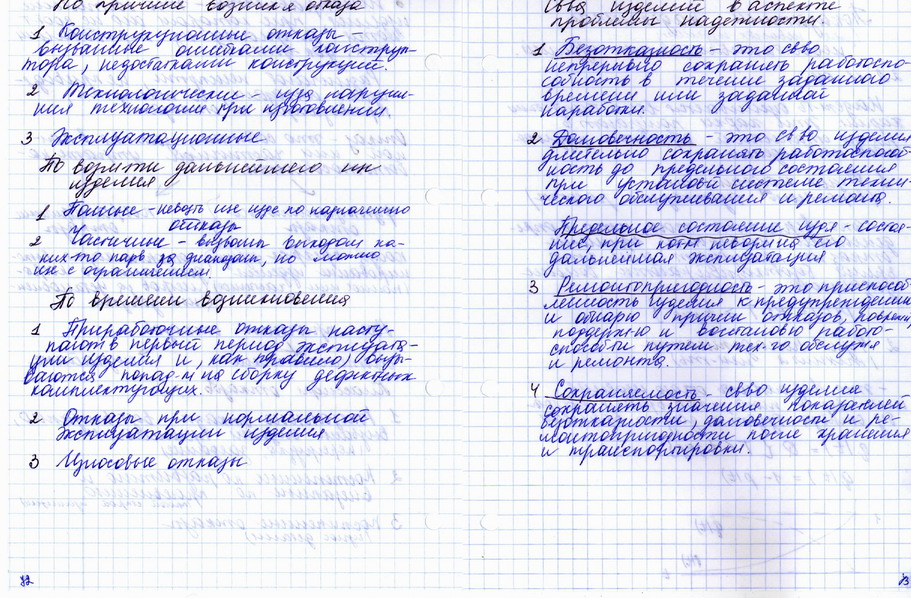 По причине возникн отказа
1 Конструкционные отказы –
вызванные ошибками конструк-
тора, недостатками конструкции.
2 Технологические – из-за наруше-
ния технологии при изготовлении.
3 Эксплуатационные
По возм-ти дальнейшего ис
изделия
1 Полные – невозм ис изде по назначению
отказы
2 Частичные – вызваны выходом ка-
ких-то парв за диапазон, но можно
ис с ограничением
По времени возникновения
1 Приработочные отказы насту-
пают в первый период эксплуата-
ции изделия и, как правило,
попад-м на сборку дефектных
комплектующих.
2 Отказы при нормальной
эксплуатации изделия
3 Износовые отказы
82
Свва изделий в аспекте
проблемы надежности.
1 Безотказность – это свво
непрерывно сохранять работоспо-
собность в течение заданного
времени или заданной
наработки.
2 Долговечность – это свво изделия
длительно сохранять работоспособ-
ность до предельного состояния
при установл системе техни-
ческого обслуживания и ремонта.
Предельное состояние изде – состоя-
ние, при котм невозм-на его
дальнейшая эксплуатация
3 Ремонтопригодность – это приспособ-
ленность изделия к предупреждению
и обнарю причин отказов, поврежд,
поддержю и восстановю работо-
способти путем тех-го обслужя
и ремонта.
4 Сохраняемость – свво изделия –
сохранять значения показателей
безотказности, долговечности и ре-
монтопригодности после хранения
и транспортировки.